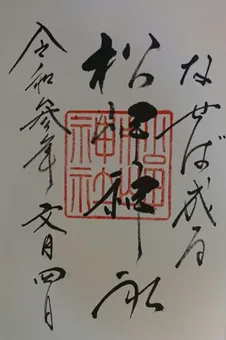 なせば成る
松岬神社
令和参年 文月四日
松岬
神社